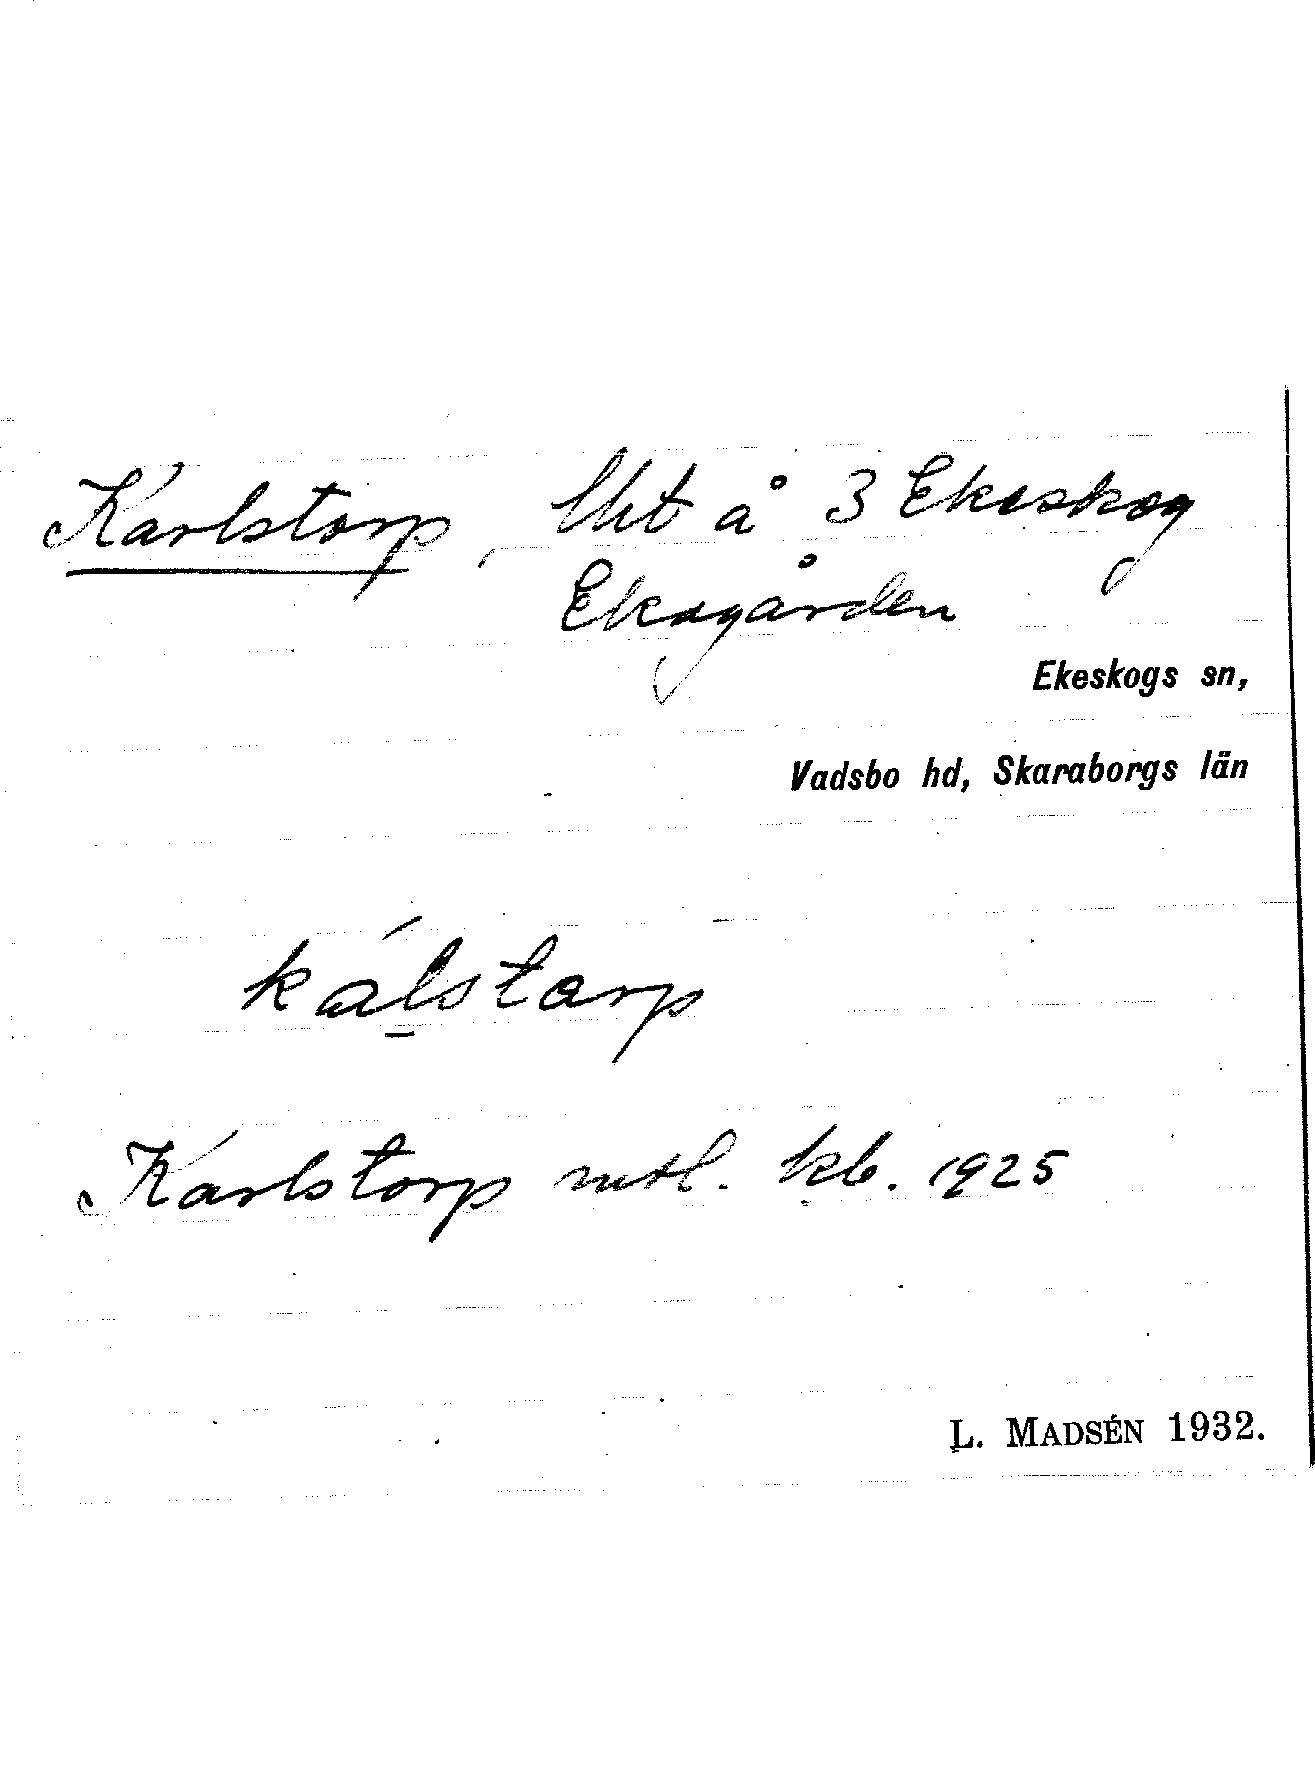 Karlstorp, lht å 3 Ekeskog
Ekagården
Ekeskogs sn,
Vadsbo hd, Skaraborgs län
kál̲starp
Karlstorp mtl. kb. 1925
L. MADSÉN 1932.